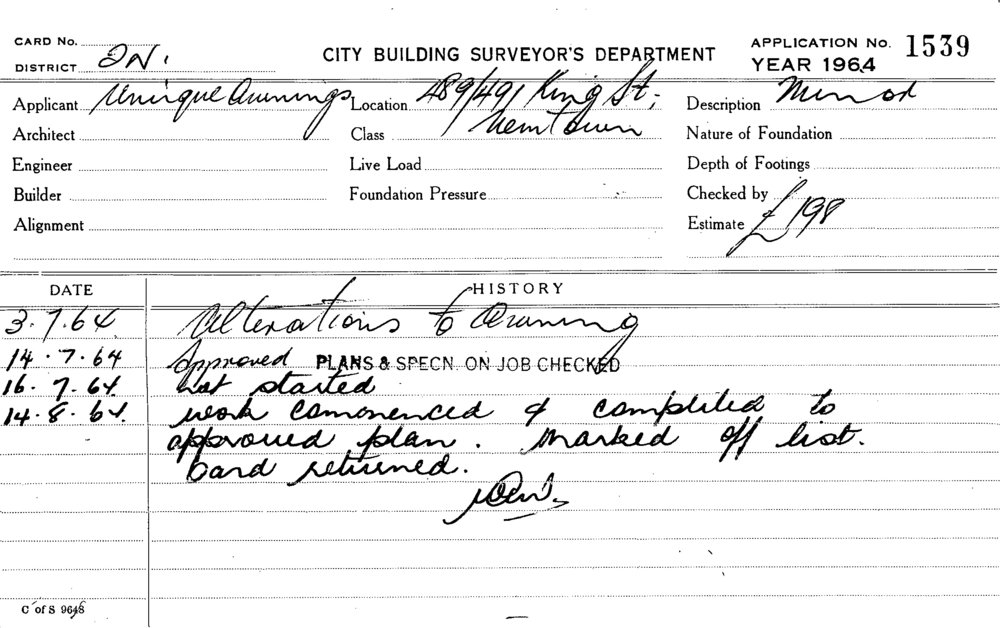 CARD No.
DISTRICT 2N.
CITY BUILDING SURVEYOR'S DEPARTMENT
APPLICATION No. 1539
YEAR 1964
Applicant Unirque Awnings
Location 489/491 King St;
Newtown
Description Minor
Architect
Class
Nature of Foundation
Engineer
Live Load
Depth of Footings
Builder
Foundation Pressure
Checked by
Alignment
Estimate £198
DATE
HISTORY
3.7.64 Alterations to Awning
14.7.64 Approved PLANS & SPECN. ON JOB CHECKED
16.7.64. not started
14.8.64. work commenced & completed to
approved plan. marked off list.
Card returned.
C of S 9648